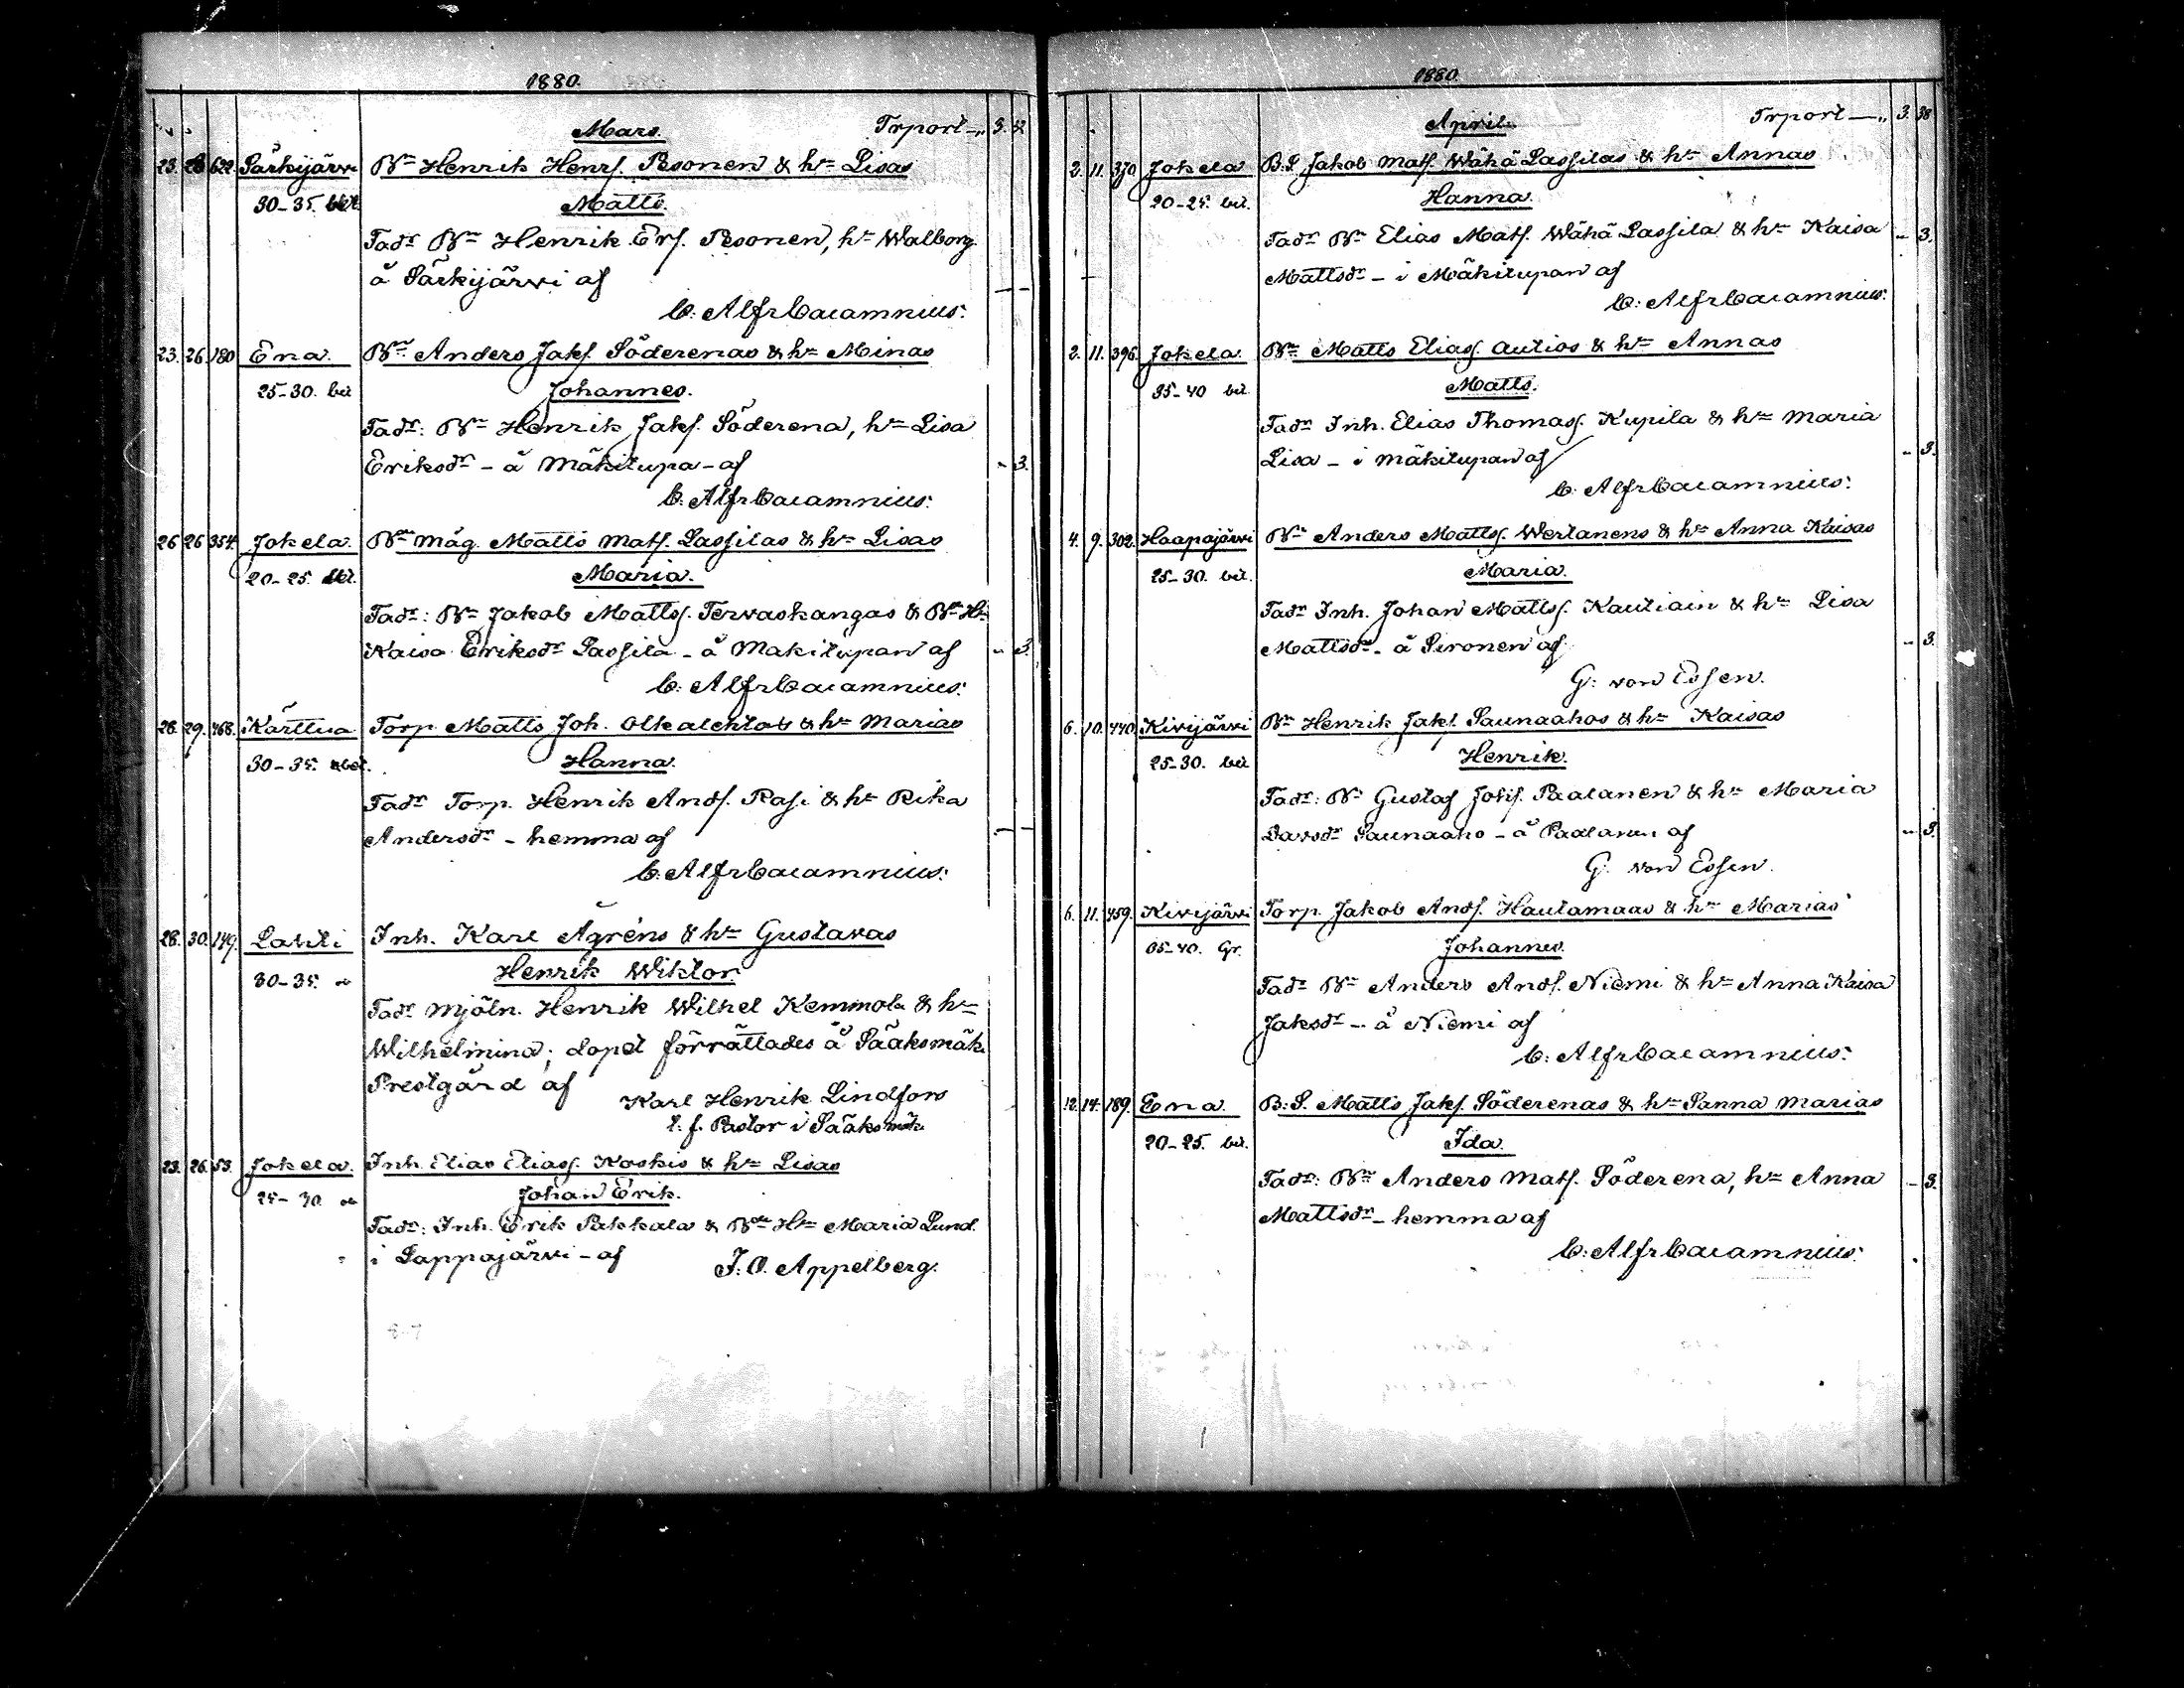 1880.
Mars. Trport —„ 3. 32
23. 28 622. Särkijärvi Bn Henrik Henrs. Pesonen & hn Lisas
30-35. bet. Matts.
Fadr Bn Henrik Ers. Pesonen, hn Walborg
å Särkijärvi af —
C: Alfr Cajamnius:
23. 26. 180 Ena. Bn Anders Jaks. Söderenas & hn Minas
25-30. bet Johannes.
Fadr: Bn Henrik Jaks. Söderena, hn Lisa
Eriksdr - å Mäkitupa - af „ 3.
C: Alfr Cajamnius:
26 26 354. Jokela. Bn måg Matts Mats. Lassilas & hn Lisas
20-25. bet. Maria.
Fadr: Bn Jakob Mattss. Tervaskangas & Bn Hn
Kaisa Eriksdr Lassila - å Makitupan af „ 3.
C: Alfr Cajamnius:
28. 29. 468. Kärttua Torp Matts Joh. Olkalehtos & hn Marias
30-35. Hanna.
Fadr Torp. Henrik Ands. Rasi & hn Rika
Andersdr - hemma af —
C: Alfr Cajamnius:
28. 30. 149. Lahti Inh. Karl Ågréns & hn Gustavas
30-35. Henrik Wiktor
Fadr Mjöln. Henrik Wilhel Kemmola & hn
Wilhelmina; dopet förrättades å Sääksmäki
Prestgård af
Karl Henrik Lindfors
t. f. Pastor i Sääksmäki
23. 26. 53. Jokela. Inh. Elias Eliass. Koskis & hn Lisas
25-30. Johan Erik.
Fadr: Inh. Erik Pakkala & Hn Maria Lund.
i Lappajärvi - af
J. O. Appelberg.
1880.
April. Trport —„ 3. 38
2. 11. 370 Jokela B.S Jakob Mats. Wähä Lassilas & hn Annas
20-25. bet. Hanna.
Fadr Bn Elias Mats. Wähä Lassila & hn Kaisa „ 3.
Mattsdr - i Mäkitupan af
C: Alfr Cajamnius:
2. 11. 396. Jokela. Bn Matts Eliass. Autios & hn Annas
35-40 bet. Matts.
Fadr Inh. Elias Thomass. Kupila & hn Maria
Lisa - i Mäkitupan af „ 3.
C: Alfr Cajamnius:
4. 9. 302. Haapajärvi Bn Anders Mattss. Wertanens & hn Anna Kaisas
25-30. bet. Maria.
Fadr Inh. Johan Mattss. Kautiain & hn Lisa
Mattsdr - å Sironen af „ 3.
G: von Essen.
6. 10. 440. Kivijärvi Bn Henrik Jaks. Saunaahos & hn Kaisas
25-30. bet Henrik.
Fadr: Bn Gustaf Johs. Paalanen & hn Maria
Davsdr Saunaaho - å Paalanen af „ 3.
G. von Essen.
6. 11. 459. Kivijärvi Torp. Jakob Ands. Hautamaas & hn Marias
35-40. Gr. Johannes.
Fadr Bn Anders Ands. Niemi & hn Anna Kaisa
Jaksdr - å Niemi af
C: Alfr Cajamnius:
12. 14. 189. Ena. B:S. Matts Jaks. Söderenas & hn Sanna Marias
20-25. bet. Ida.
Fadr: Bn Anders Mats. Söderena, hn Anna „ 3.
Mattsdr - hemma af
C: Alfr Cajamnius: